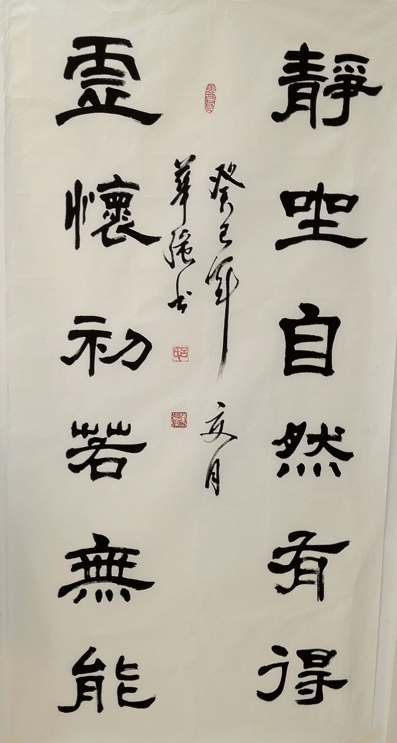 靜坐自然有得
癸巳年 夏月
華強书
霊懷初若無能